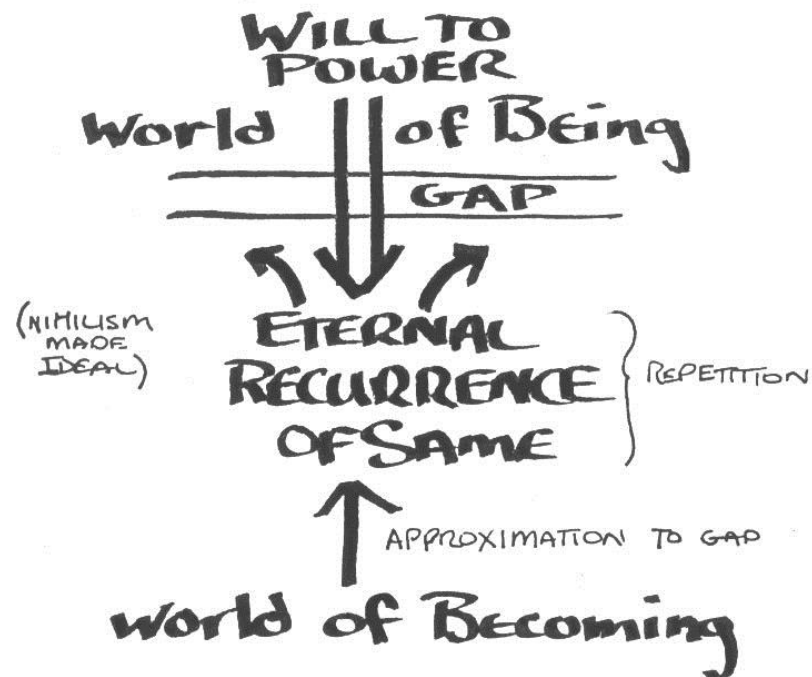 WILL TO
POWER
World of Being
GAP
(NIHILISM
MADE
IDEAL)
ETERNAL
RECURRENCE
OF SAME
REPETITION
APPROXIMATION TO GAP
World of Becoming